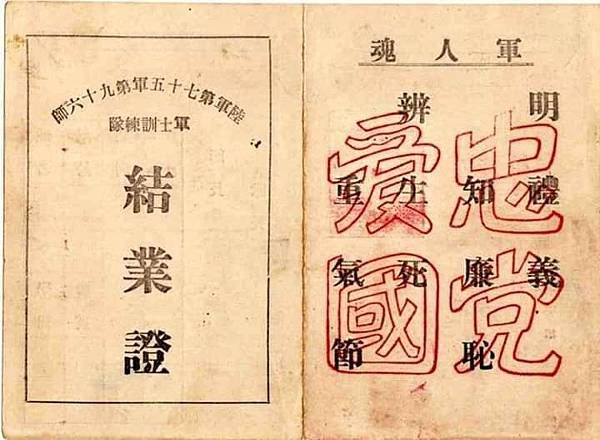 陸軍第七十五軍第九十六師
軍士訓練隊
結業證
軍人魂
明禮義
知廉恥
辨生死
重氣節
忠党
愛國